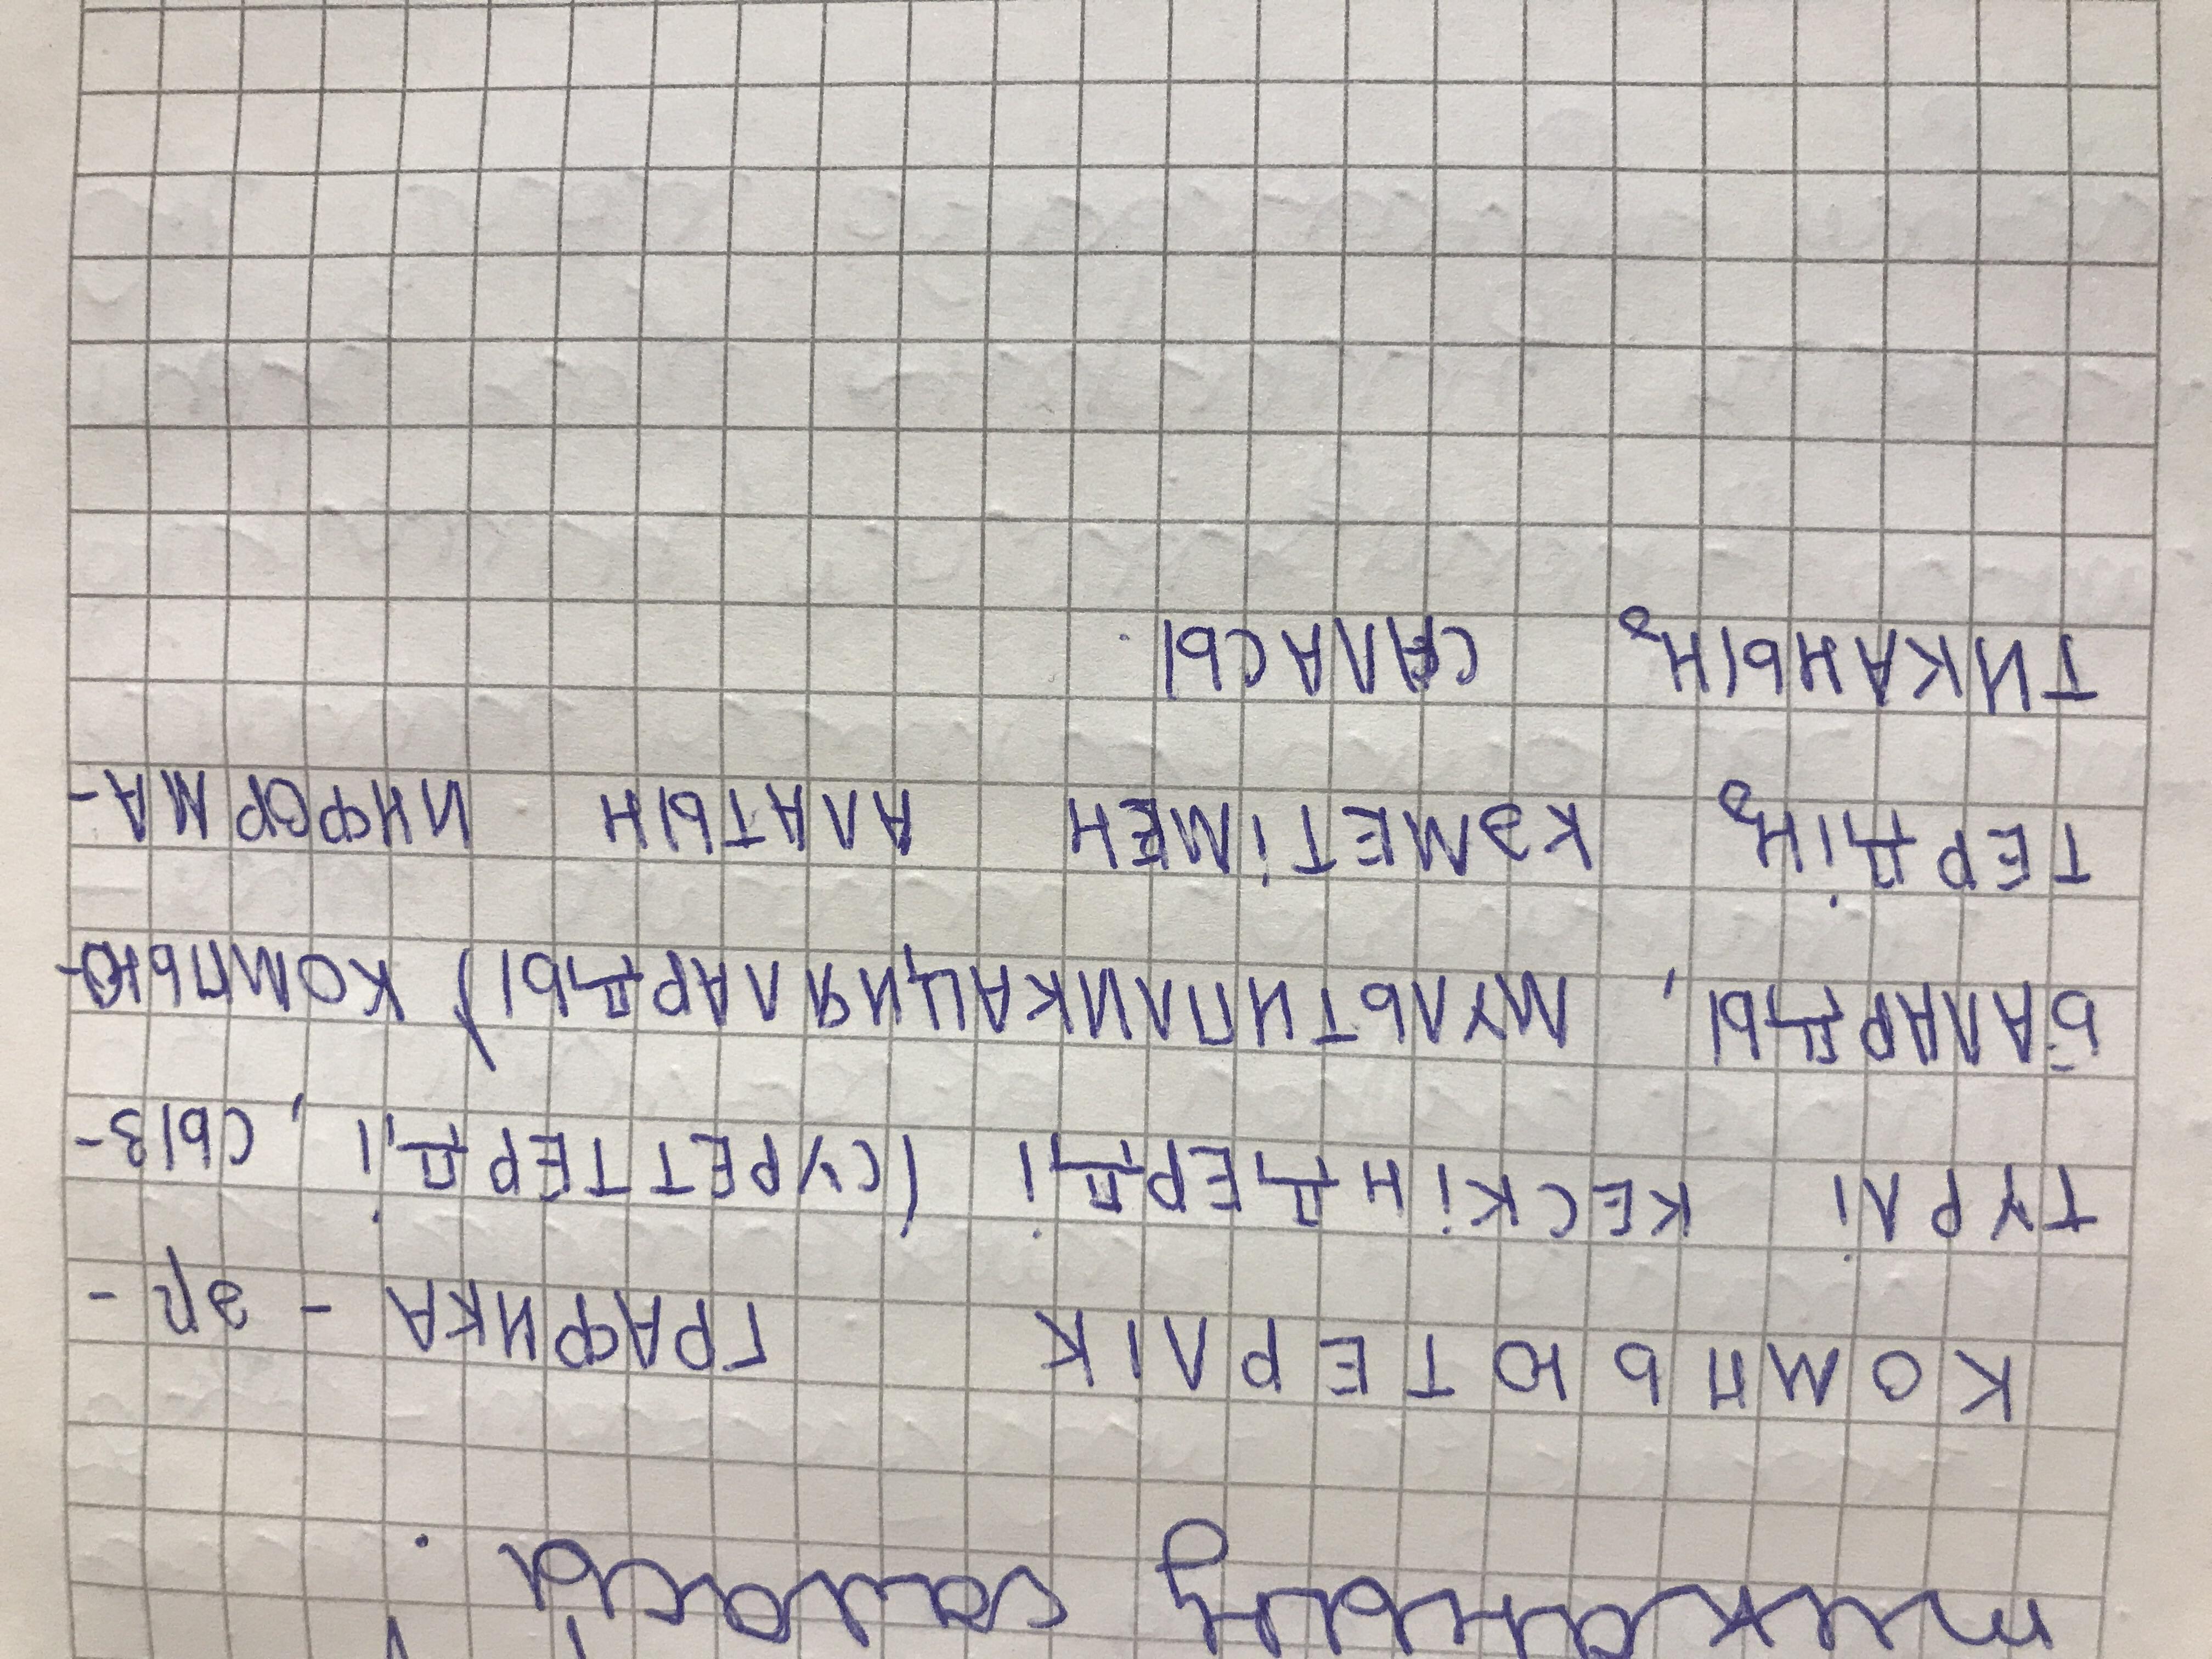 тиканың саласы.
КОМПЬЮТЕРЛІК ГРАФИКА - ӘР-
ТҮРЛІ КЕСКІНДЕРДІ (СУРЕТТЕРДІ, СЫЗ-
БАЛАРДЫ, МУЛЬТИПЛИКАЦИЯЛАРДЫ) КОМПЬЮ-
ТЕРДІҢ КӘМЕТІМЕН АЛАТЫН ИНФОРМА-
ТИКАНЫҢ САЛАСЫ.